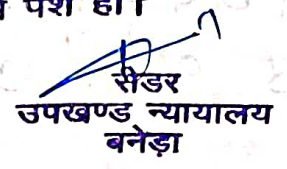 पेश हो।
रीडर
उपखण्ड न्यायालय
बनेड़ा